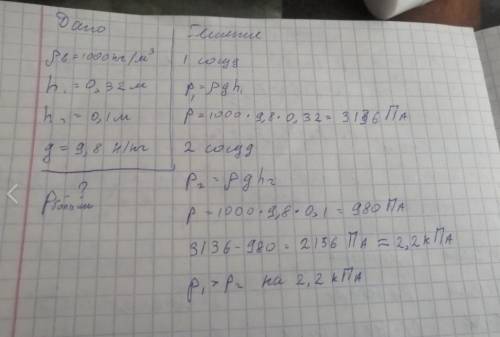 Дано
ρв = 1000 кг/м³
h₁ = 0,32 м
h₂ = 0,1 м
g = 9,8 Н/кг
?
Решение
1 сосуд
p₁ = ρgh₁
p = 1000 · 9,8 · 0,32 = 3136 Па
2 сосуд
p₂ = ρgh₂
p = 1000 · 9,8 · 0,1 = 980 Па
3136 - 980 = 2156 Па ≈ 2,2 кПа
p₁ > p₂ на 2,2 кПа